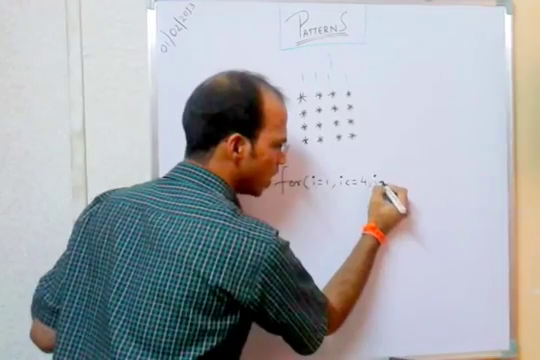 01/02/2013
PATTERNS
* * * *
* * * *
* * * *
* * * *
for(i=1, i<=4, i